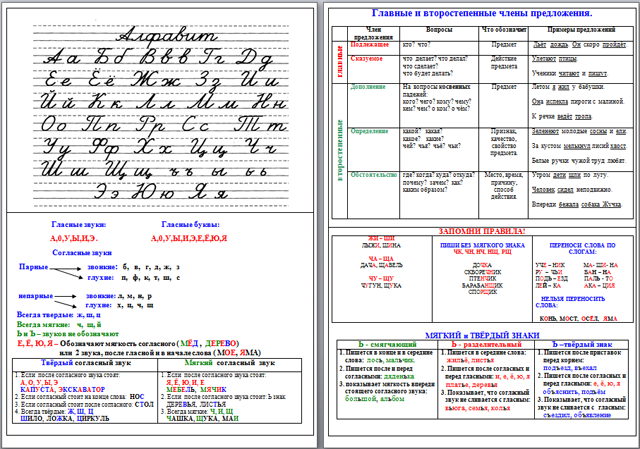 Алфавит
Аа Бб Ввв Гг Дд
Ее Ёё Жж Зз Ии
Йй Кк Лл Мм Нн
Оо Пп Рр Сс Тт
Уу Фф Хх Цц Чч
Шш Щщ ъ ы ь
Ээ Юю Яя
Гласные звуки: Гласные буквы:
А,О,У,Ы,И,Э. А,О,У,Ы,И,Э,Е,Ё,Ю,Я
Согласные звуки
Парные звонкие: б, в, г, д, ж, з
глухие: п, ф, к, т, ш, с
непарные звонкие: л, м, н, р
глухие: х, ц, ч, щ
Всегда твердые: ж, ш, ц
Всегда мягкие: ч, щ, й
Ь и Ъ – звуков не обозначают
Е, Ё, Ю, Я – Обозначают мягкость согласного (МЁД , ДЕРЕВО)
или 2 звука, после гласной и в начале слова (МОЕ, ЯМА)
Твёрдый согласный звук
1. Если после согласного звука стоят:
А, О, У, Ы, Э
КАПУСТА, ЭКСКАВАТОР
2. Если согласный стоит на конце слова: НОС
3. Если согласный стоит после согласного: СТОЛ
4. Всегда твёрдые: Ж, Ш, Ц
ШИЛО, ЛОЖКА, ЦИРКУЛЬ
Мягкий согласный звук
1. Если после согласного звука стоят:
Я, Ё, Ю, И, Е
МЕБЕЛЬ, МЯЧИК
2. Если после согласного звука стоит Ь знак
ДЕРЕВЬЯ, ЛИСТЬЯ
3. Всегда мягкие: Ч, Й, Щ
ЧАШКА, ЩУКА, МАЙ
Главные и второстепенные члены предложения.
Член предложения Вопросы Что обозначает Примеры предложений
главные
Подлежащее кто? что? Предмет Льёт дождь. Он скоро пройдёт.
Сказуемое
что делает? что делал?
что сделает?
что будет делать?
Действие
предмета
Улетают птицы.
Ученики читают и пишут.
второстепенные
Дополнение
На вопросы косвенных
падежей:
кого? чего? кому? чему?
кем? чем? о ком? о чём?
Предмет
Летом я жил у бабушки.
Она испекла пироги с малиной.
К речке ведёт тропа.
Определение
какой? какая?
какое? какие?
чей? чья? чьё? чьи?
Признак,
качество,
свойство
предмета.
Зеленеют молодые сосны и ели.
За кустом мелькнул лисий хвост.
Белые ручки чужой труд любят.
Обстоятельство
где? когда? куда? откуда?
почему? зачем? как?
каким образом?
Место, время,
причину,
способ
действия.
Утром дети шли по лугу.
Человек сидел неподвижно.
Впереди бежала собака Жучка.
ЗАПОМНИ ПРАВИЛА!
ЖИ – ШИ
ЛЫЖИ, ШИНА
ЧА – ЩА
ДАЧА, ЩАВЕЛЬ
ЧУ – ЩУ
ЧУГУН, ЩУКА
ПИШИ БЕЗ МЯГКОГО ЗНАКА
ЧК, ЧН, НЧ, НЩ, РЩ
ДОЧКА
СКВОРЕЧНИК
ПТЕНЧИК
БАРАБАНЩИК
СПОРЩИК
ПЕРЕНОСИ СЛОВА ПО
СЛОГАМ:
УЧЕ – НИК МА- ШИ- НА
РУ – ЧЬИ ВАН – НА
ПОДЪ – ЕЗД ПАЛЬ - ТО
ЛЕЙ – КА АКА – ЦИЯ
НЕЛЬЗЯ ПЕРЕНОСИТЬ
СЛОВА:
КОНЬ, МОСТ, ОСЁЛ, ЯМА
МЯГКИЙ и ТВЁРДЫЙ ЗНАКИ
Ь - смягчающий
1. Пишется в конце и в середине
слова: лось, мальчик.
2. Пишется после и перед
согласными: даденька
3. показывает мягкость впереди
стоящего согласного звука:
большой, альбом
Ь - разделительный
1. Пишется в середине слова:
жильё, листья
2. Пишется после согласных и
перед гласными: и, е, ё, ю, я
платье, деревья
3. Показывает, что согласный
звук не сливается с гласным:
вьюга, семья, колья
Ъ –твёрдый знак
1. Пишется после приставок
перед корнем:
подъезд, въехал
2. Пишется после согласных и
перед гласными: е, ё, ю, я
объяснить, подъём
3. Показывает, что согласный
звук не сливается с гласным:
съездил, объявление